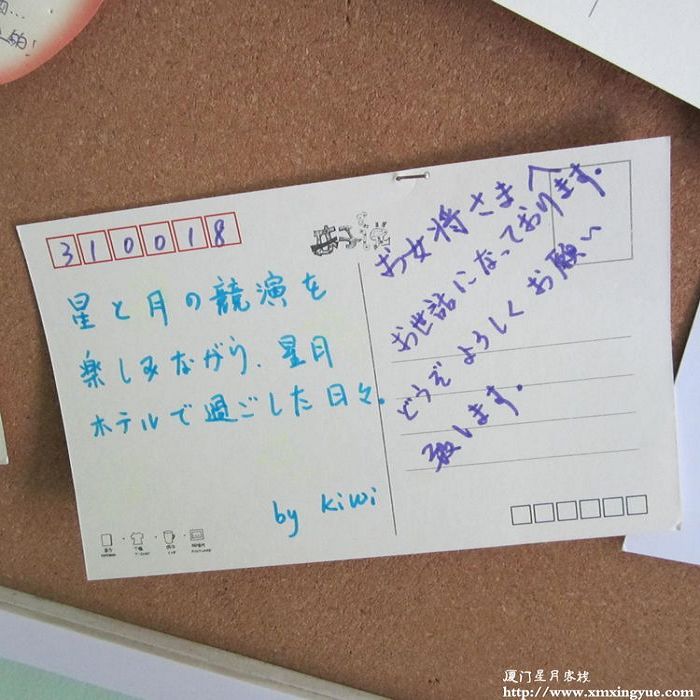 310018
星と月の競演を
楽しみながら、星月
ホテルで過ごした日々。
by kiwi
お女将さまへ
お世話になっております。
どうぞよろしくお願い
致します。
厦门星月客栈
http://www.xmxingyue.com